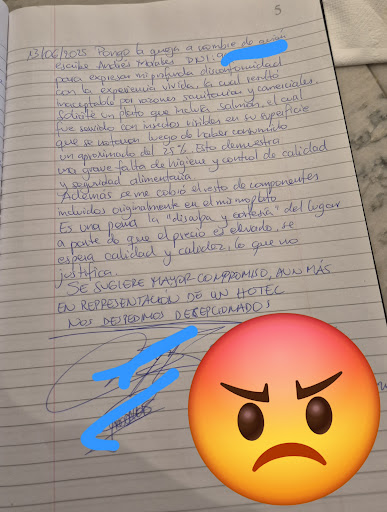 5
13/06/2025 Pongo la queja a nombre de quién
escribe Andrés Morales DNI:9
para expresar mi profunda disconformidad
con la experiencia vivida, la cual resultó
inaceptable por razones sanitarias y comerciales.
Solicité un plato que incluía salmón, el cual
fue servido con insectos visibles en su superficie
que se notaron luego de haber consumido
un aproximado del 25%. Esto demuestra
una grave falta de higiene y control de calidad
y seguridad alimentaria
Además se me cobró el resto de componentes
incluidos originalmente en el mismo plato
Es una pena la "disculpa y cortesía" del lugar
a parte de que el precio es elevado, se
espera calidad y calidez, lo que no
justifica.
SE SUGIERE MAYOR COMPROMISO, AUN MÁS
EN REPRESENTACIÓN DE UN HOTEL
NOS DESPEDIMOS DESEPCIONADOS